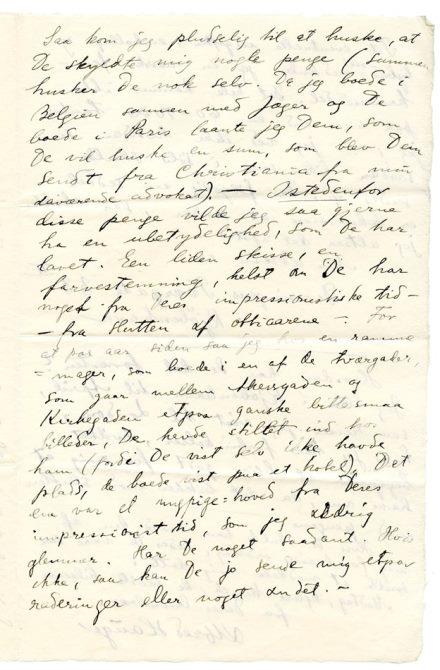 Saa kom jeg pludselig til at huske, at
De skyldte mig nogle penge (summen
husker De nok selv Da jeg boede i
Belgien sammen med Jæger og De
boede i Paris laante jeg Dem, som
De vil huske en sum, som blev Dem
sendt fra Christiania fra min
daværende advokat). — Istedenfor
disse penge vilde jeg saa gjerne
ha en ubetydelighed, som De har
lavet. Een liden skisse, en
farvestemning, helst om De har
noget fra Deres impressionistiske tid—
— fra slutten af ottiaarene —. For
et par aar siden saa jeg hos en ramme
=mager, som boede i en af de tværgader,
som gaar mellem theatergaden og
Kirkegaden etpar ganske bitte smaa
billeder, De havde stillet ind hos
ham (fordi De vist selv ikke havde
plads, de boede vist paa et hotel). Det
ene var et ungpige=hoved fra Deres
impressionist tid, som jeg aldrig
glemmer. Har De noget saadant. Hvis
ikke, saa kan De jo sende mig etpar
raderinger eller noget andet. —
Alfred Hauge